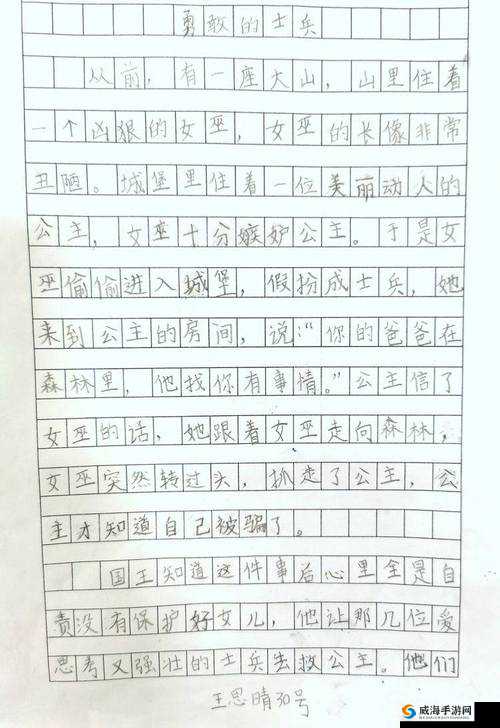 勇敢的士兵
从前，有一座大山，山里住着
一个凶狠的女巫，女巫的长像非常
丑陋。城堡里住着一位美丽动人的
公主，女巫十分嫉妒公主。于是女
巫偷偷进入城堡，假扮成士兵，她
来到公主的房间，说：“你的爸爸在
森林里，他找你有事情。”公主信了
女巫的话，她跟着女巫走向森林，
女巫突然转过头，抓走了公主，公
主才知道自己被骗了。
国王知道这件事后心里全是自
责没有保护好女儿，他让那几位爱
思考又强壮的士兵去救公主。他们
王思晴30号
威海手游网